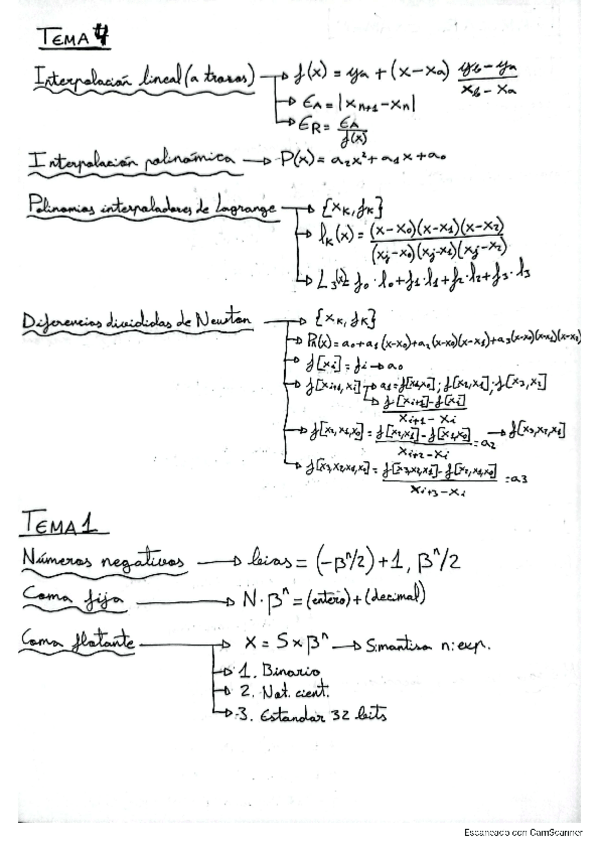 TEMA 4
Interpolación lineal (a trozos) → f(x) = ya + (x-xa) (yb-ya)/(xb-xa)
→ ϵA = |xn+1 - xn|
→ ϵR = ϵA/f(x)
Interpolación polinómica → P(x) = a2x²+a1x+a0
Polinomios interpoladores de Lagrange → {xK, fK}
→ lK(x) = (x-x0)(x-x1)(x-x2)/(xj-x0)(xj-x1)(xj-x2)
→ L3(x) = f0·l0+f1·l1+f2·l2+f3·l3
Diferencias divididas de Newton → {xK, fK}
→ Pn(x) = a0+a1(x-x0)+a2(x-x0)(x-x1)+a3(x-x0)(x-x1)(x-x0)
→ f[xi] = fi → a0
→ f[xi+1, xi] → a1 = f[x1,x0]; f[x2,x1]; f[x3,x2]
→ f[xi+1]-f[xi]/xi+1 - xi
→ f[x2,x1,x0] = f[x2,x1] - f[x1,x0]/xi+2 - xi = a2 → f[x3,x2,x1]
→ f[x3,x2,x1,x0] = f[x3,x2,x1] - f[x2,x1,x0]/xi+3 - xi = a3
TEMA 1
Números negativos → bias = (-βⁿ/2) + 1, βⁿ/2
Coma fija → N·βⁿ = (entero) + (decimal)
Coma flotante → X = S x βⁿ → S:mantisa n:exp.
→ 1. Binario
→ 2. Not. cient.
→ 3. Estandar 32 bits
Escaneado con CamScanner